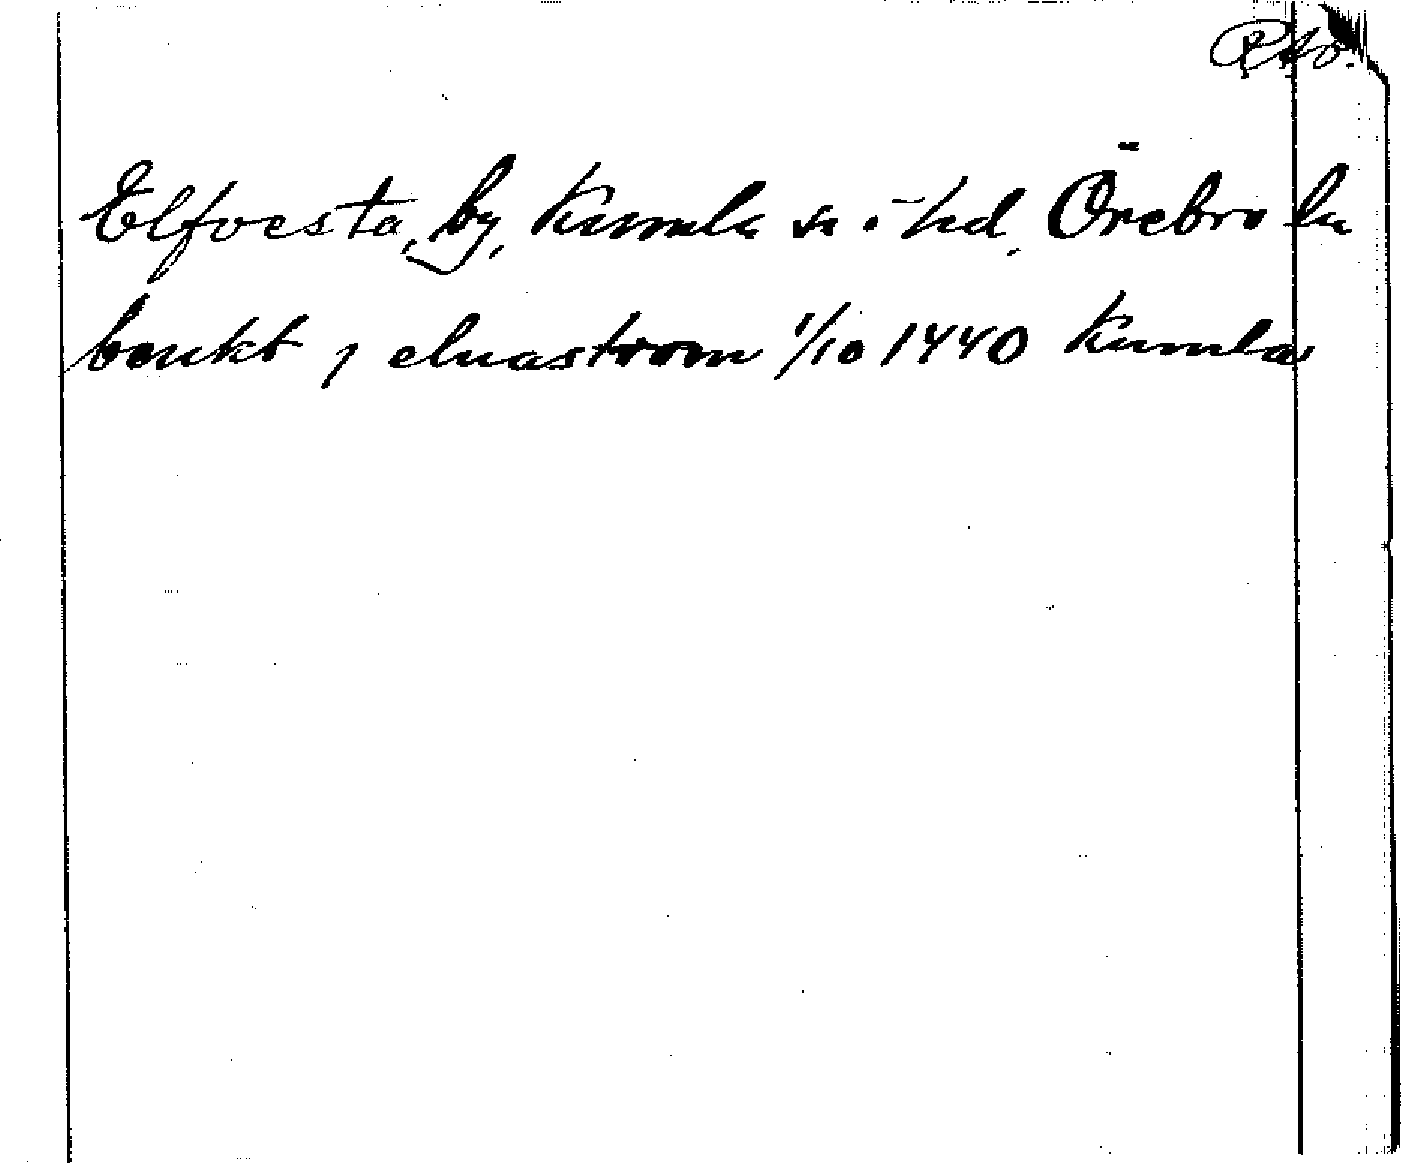 RAÖ.
Elfvesta, by, Kumla sn o hd, Örebro län
benkt j eluastom 1/10 1440 Kumla